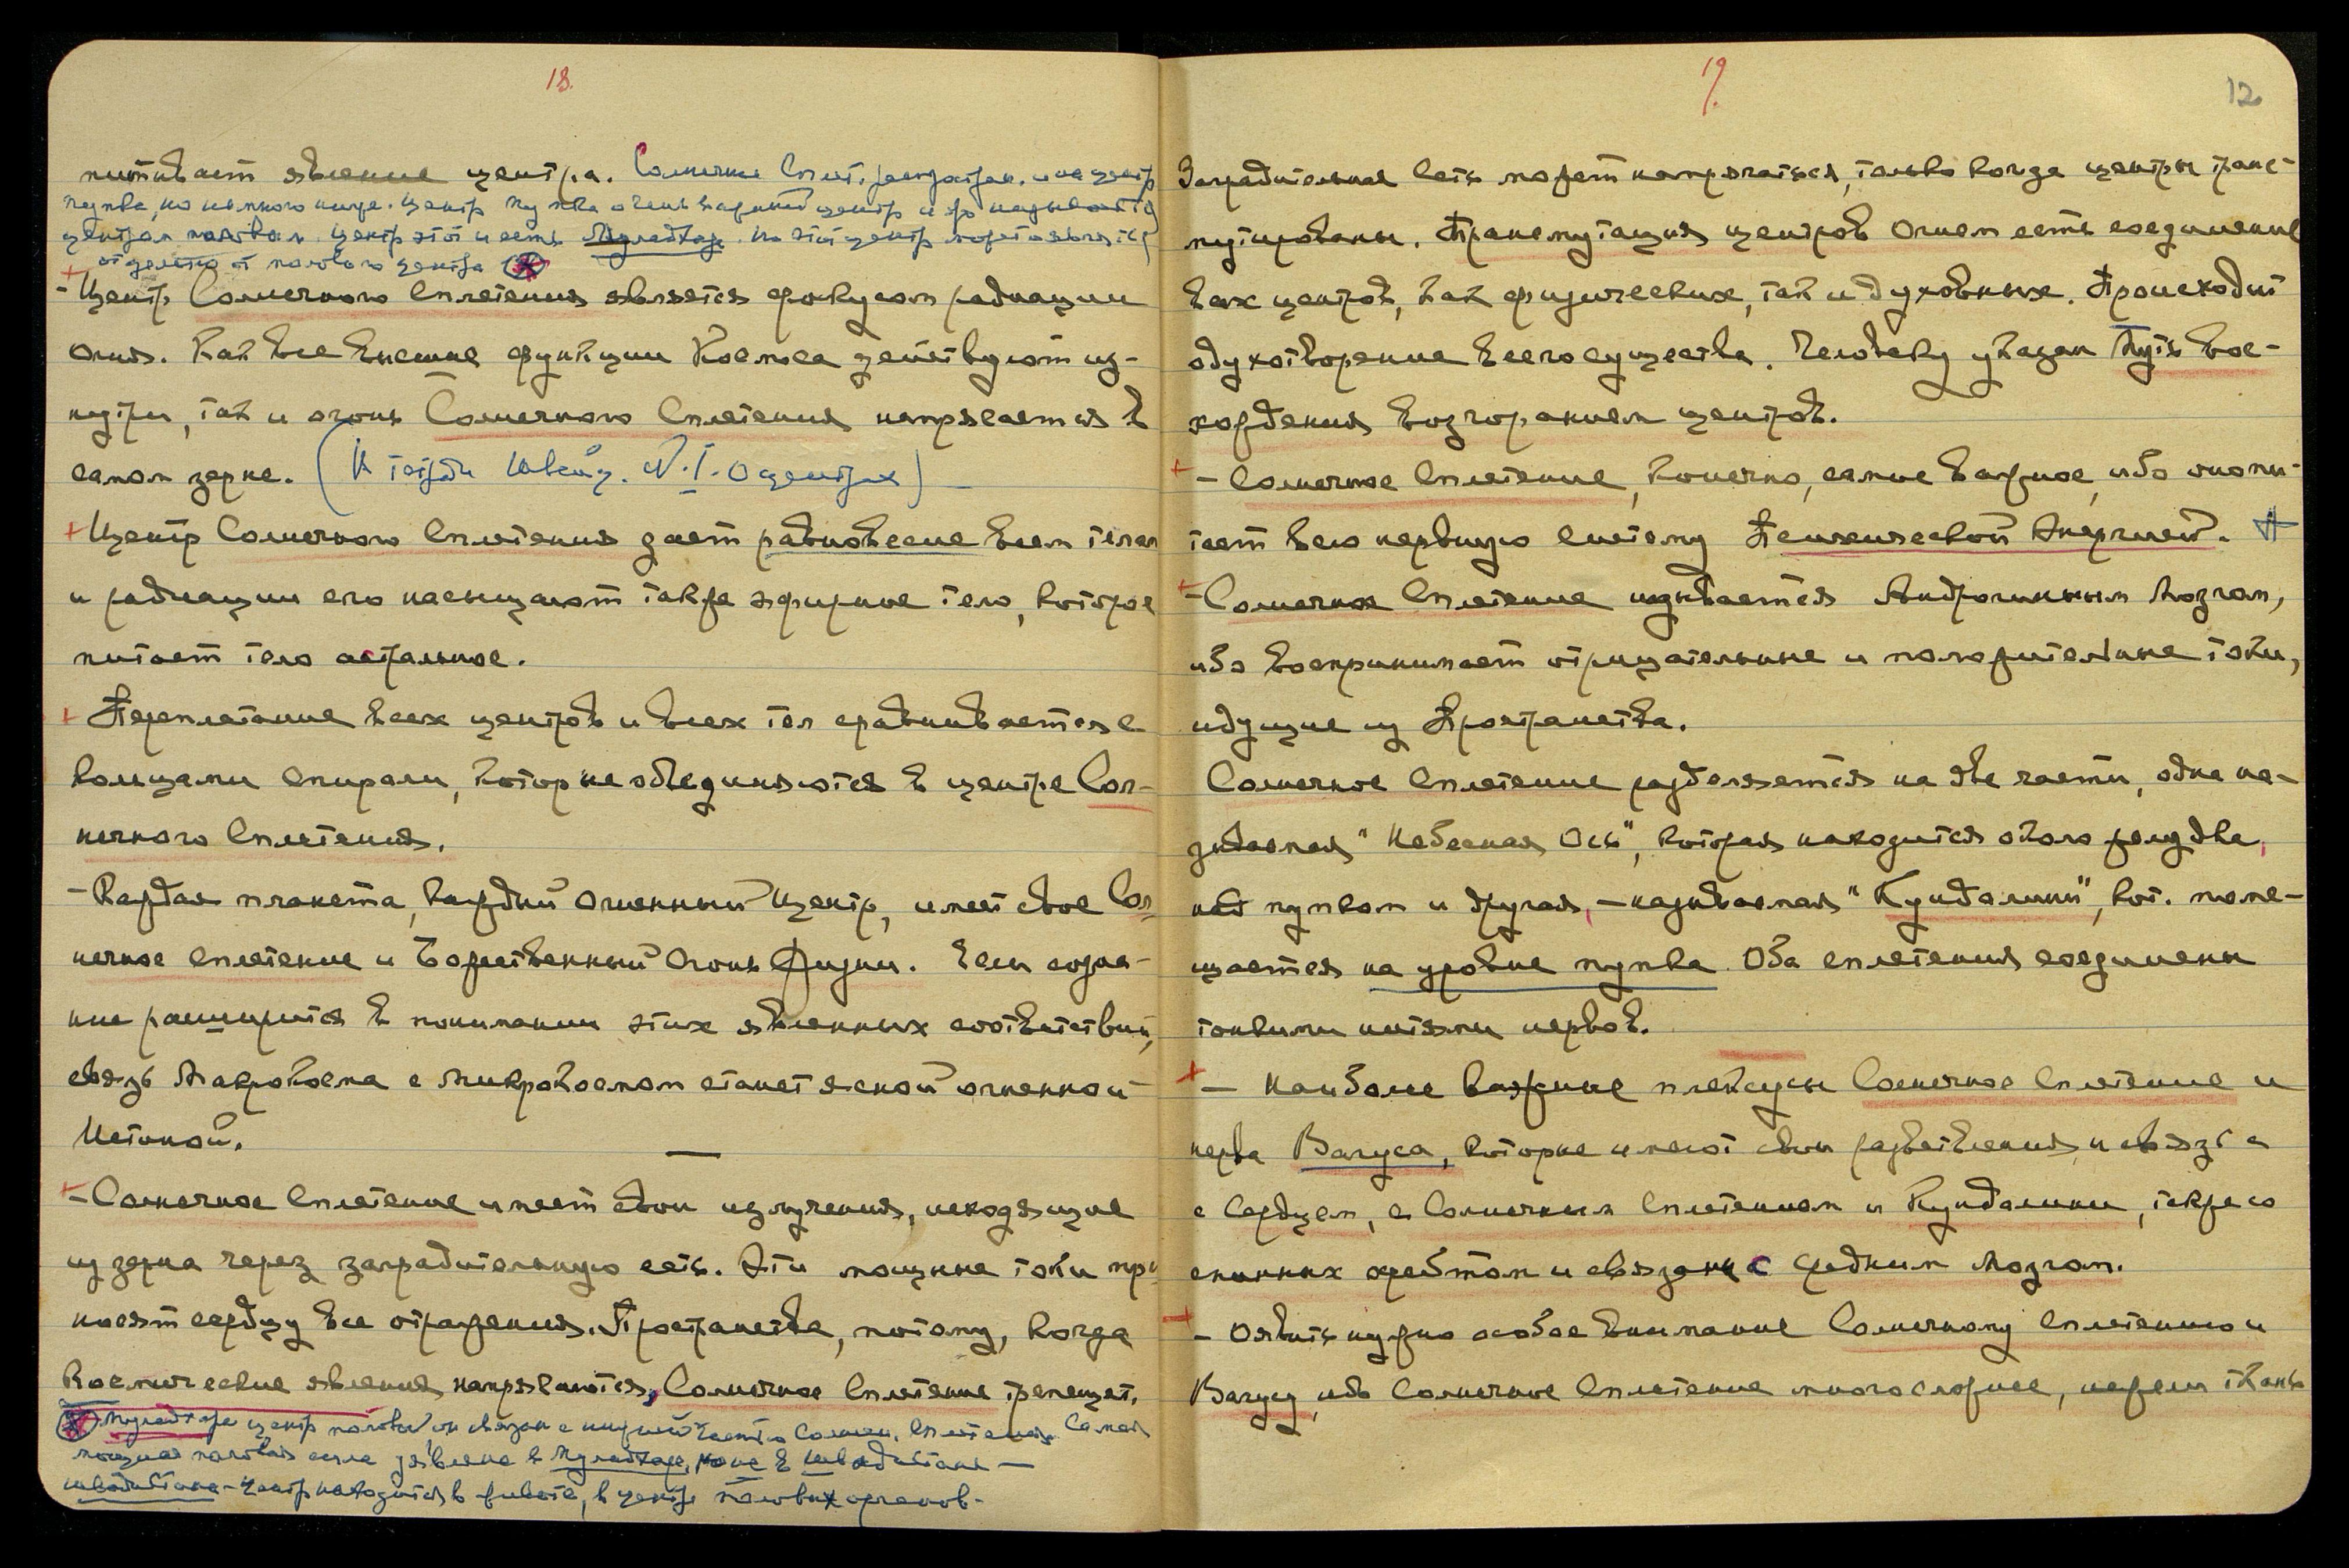 18.
питывает явление центра. Солнечное Сплет. распростран. и на центр
пупка, но немного ниже. Центр пупка очень важный центр и его называют
центром половым. Центр этот и есть Муладхара. Но этот центр может являться
отдельно от полового центра
+ - Центр Солнечного Сплетения является фокусом радиации
Огня. Как все внешние функции Космоса действуют из-
нутри, так и огонь Солнечного Сплетения напрягается в
самом зерне. (К тетради Швейц. N. I. О центрах) –
+ Центр Солнечного Сплетения дает равновесие всем телам
и радиации его насыщают также эфирное тело, которое
питает тело астральное.
+ Переплетание всех центров и всех тел сравнивается с
кольцами спирали, которые объединяются в центре Сол-
нечного Сплетения.
- Каждая планета, каждый Огненный Центр, имеет свое Сол-
нечное сплетение и Божественный Огонь Жизни. Если созна-
ние расширится в понимании этих явленных соответствий,
связь Макрокосма с Микрокосмом станет ясной огненной
Истиной.
+ - Солнечное Сплетение имеет свои излучения, исходящие
из зерна через заградительную сеть. Эти мощные токи при-
носят сердцу все отражения Пространства, потому, когда
Космические явления напрягаются, Солнечное Сплетение трепещет.
Муладхара центр половой, он связан с нижней частью Солнечн. Сплетения. Самая
мощная половая сила заявлена в Муладхаре, но не в Швадистане –
Швадистана – центр находится в животе, в центре половых органов.
19.
12
Заградительная Сеть может напрягаться, только когда центры транс-
мутированы. Трансмутация центров Огнем есть соединение
всех центров, как физических, так и духовных. Происходит
одухотворение всего существа. Человеку указан Путь Вос-
хождения возгоранием центров.
+ - Солнечное Сплетение, конечно, самое важное, ибо оно пи-
тает всю нервную систему Психической Энергией.
+ - Солнечное Сплетение называется Андрогинным Мозгом,
ибо воспринимает отрицательные и положительные токи,
идущие из Пространства.
Солнечное Сплетение разделяется на две части, одна на-
зываемая "Небесная Ось", которая находится около желудка,
над пупком и другая, – называемая "Кундалини", кот. поме-
щается на уровне пупка. Оба сплетения соединены
тонкими нитями нервов.
+ - Наиболее важные плексусы Солнечное Сплетение и
нерва Вагуса, которые имеют свои разветвления и связь с
с Сердцем, с Солнечным Сплетением и Кундалини, также со
спинным хребтом и связаны с средним мозгом.
+ - Оявить нужно особое внимание Солнечному Сплетению и
Вагусу, ибо Солнечное Сплетение много сложнее, нежели ткань